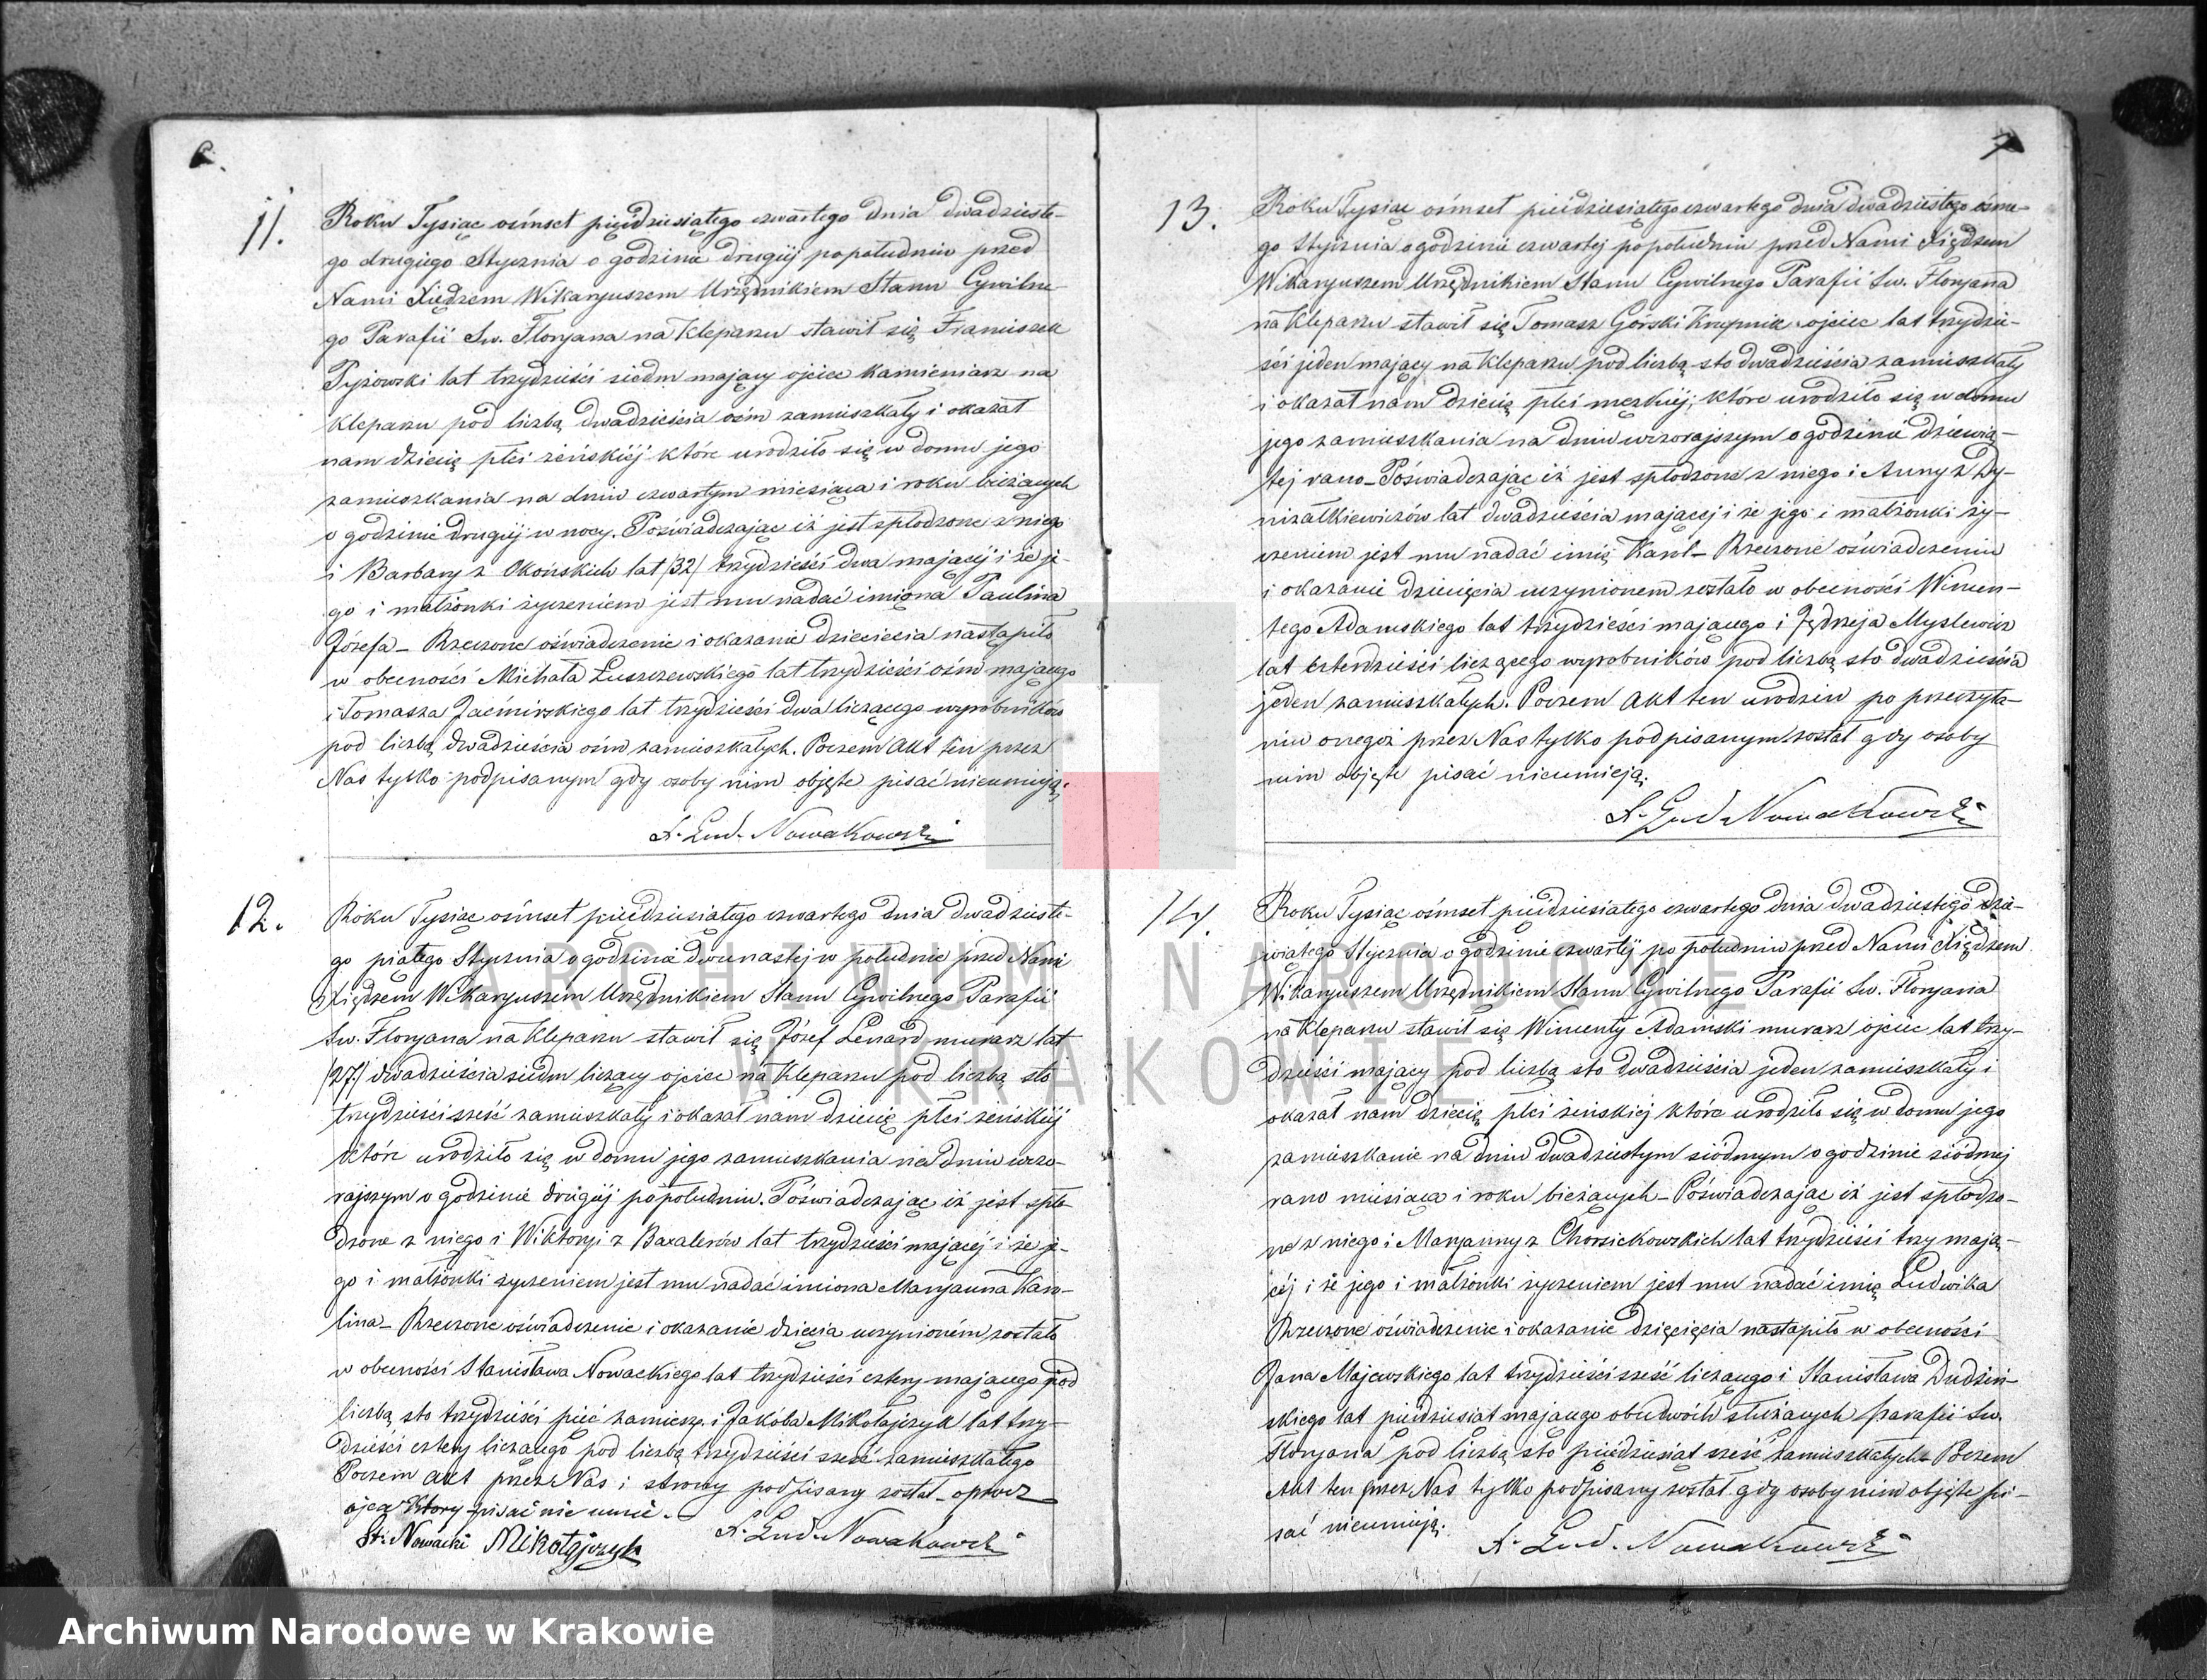 6.
11.
Roku Tysiąc ośmset pięćdziesiątego czwartego dnia dwadzieste-
go drugiego Stycznia o godzinie drugiéj popołudniu przed
Nami Xiędzem Wikaryuszem Urzędnikiem Stanu Cywilne-
go Parafii Sw. Floryana na Kleparzu stawił się Franciszek
lat trzydzieści siedm mający ojciec kamieniarz na
Kleparzu pod liczbą dwadzieścia ośm zamieszkały i okazał
nam dziecię płci żeńskiéj które urodziło się w domu jego
zamieszkania na dniu czwartym miesiąca i roku bieżących
o godzinie drugiéj w nocy. Poświadczając iż jest spłodzone z niego
i Barbary z Okońskich lat /32/ trzydzieści dwa mającéj i że je-
go i małżonki życzeniem jest mu nadać imiona Paulina
Józefa _ Rzeczone oświadczenie i okazanie dziecięcia nastąpiło
w obecności Michała Łuszczewskiego lat trzydzieści ośm mającego
i Tomasza lat trzydzieści dwa liczącego wyrobników
pod liczbą dwadzieścia ośm zamieszkałych. Poczem Akt ten przez
Nas tylko podpisanym gdy osoby nim objęte pisać nieumieją.
X. Lud. Nowakowski
12.
Roku Tysiąc ośmset pięćdziesiątego czwartego dnia dwadzieste-
go piątego Stycznia o godzinie dwunastej w południe przed Nami
Xiędzem Wikaryuszem Urzędnikiem Stanu Cywilnego Parafii
Sw. Floryana na Kleparzu stawił się Józef Lenard murarz lat
/27/ dwadzieścia siedm liczący ojciec na Kleparzu pod liczbą sto
trzydzieści sześć zamieszkały i okazał nam dziecię płci żeńskiéj
które urodziło się w domu jego zamieszkania na dniu wczo-
rajszym o godzinie drugiéj popołudniu. Poświadczając iż jest spło-
dzone z niego i Wiktoryi z Baxalerów lat trzydzieści mającéj i że je-
go i małżonki życzeniem jest mu nadać imiona Maryanna Karo-
lina _ Rzeczone oświadczenie i okazanie dziecia uczynioném zostało
w obecności Stanisława Nowackiego lat trzydzieści cztery mającego pod
liczbą sto trzydzieści pięć zamiesz. i Jakóba Mikołajczyk lat trzy-
dzieści cztery liczącego pod liczbą trzydzieści sześć zamieszkałego
Poczem akt przez Nas i strony podpisany został _ oprócz
ojca który pisać nie umié.
St. Nowacki Mikołajczyk X. Lud. Nowakowski
7
13.
Roku Tysiąc ośmset pięćdziesiątego czwartego dnia dwadziestego ósme-
go Stycznia o godzinie czwartéj popołudniu przed Nami Xiędzem
Wikaryuszem Urzędnikiem Stanu Cywilnego Parafii Sw. Floryana
na Kleparzu stawił się Tomasz Górski Krupnik ojciec lat trzydzie-
ści jeden mający na Kleparzu pod liczbą sto dwadzieścia zamieszkały
i okazał nam dziecię płci męzkiéj, które urodziło się w domu
jego zamieszkania na dniu wczorajszym o godzinie dziewią-
tej rano _ Poświadczając iż jest spłodzone z niego i Anny z Dy-
nizałkiewiczów lat dwadzieścia mającéj i że jego i małżonki ży-
czeniem jest mu nadać imię Karol _ Rzeczone oświadczenie
i okazanie dziecięcia uczynionem zostało w obecności Wincen-
tego Adamskiego lat trzydzieści mającego i Jędrzeja Myslewicz
lat czterdzieści liczącego wyrobników pod liczbą sto dwadzieścia
jeden zamieszkałych. Poczem Akt ten urodzin po przeczyta-
niu onegoż przez Nas tylko podpisanym został gdy osoby
nim objęte pisać nieumieją.
X. Lud. Nowakowski
14.
Roku Tysiąc ośmset pięćdziesiątego czwartego dnia dwadziestego dzie-
wiątego Stycznia o godzinie czwartéj po południu przed Nami Xiędzem
Wikaryuszem Urzędnikiem Stanu Cywilnego Parafii Sw. Floryana
na Kleparzu stawił się Wincenty Adamski murarz ojciec lat trzy-
dzieści mający pod liczbą sto dwadzieścia jeden zamieszkały i
okazał nam dziecię płci żeńskiej które urodziło się w domu jego
zamieszkanie na dniu dwadziestym siódmym o godzinie siódmej
rano miesiąca i roku bieżących _ Poświadczając iż jest spłodzo-
ne z niego i Maryanny z lat trzydzieści trzy mają-
céj i że jego i małżonki życzeniem jest mu nadać imię Ludwika
Rzeczone oświadczenie i okazanie dzięcięcia nastąpiło w obecności
Jana Majewskiego lat trzydzieści sześć liczącego i Stanisława Dudziń-
skiego lat pięćdziesiąt mającego obudwóch służących parafii Sw.
Floryana pod liczbą sto pięćdziesiąt sześć zamieszkałych. Poczem
Akt ten przez Nas tylko podpisany został gdy osoby nim objęte pi-
sać nieumieją.
X. Lud. Nowakowski
ARCHIWUM NARODOWE
W KRAKOWIE
Archiwum Narodowe w Krakowie